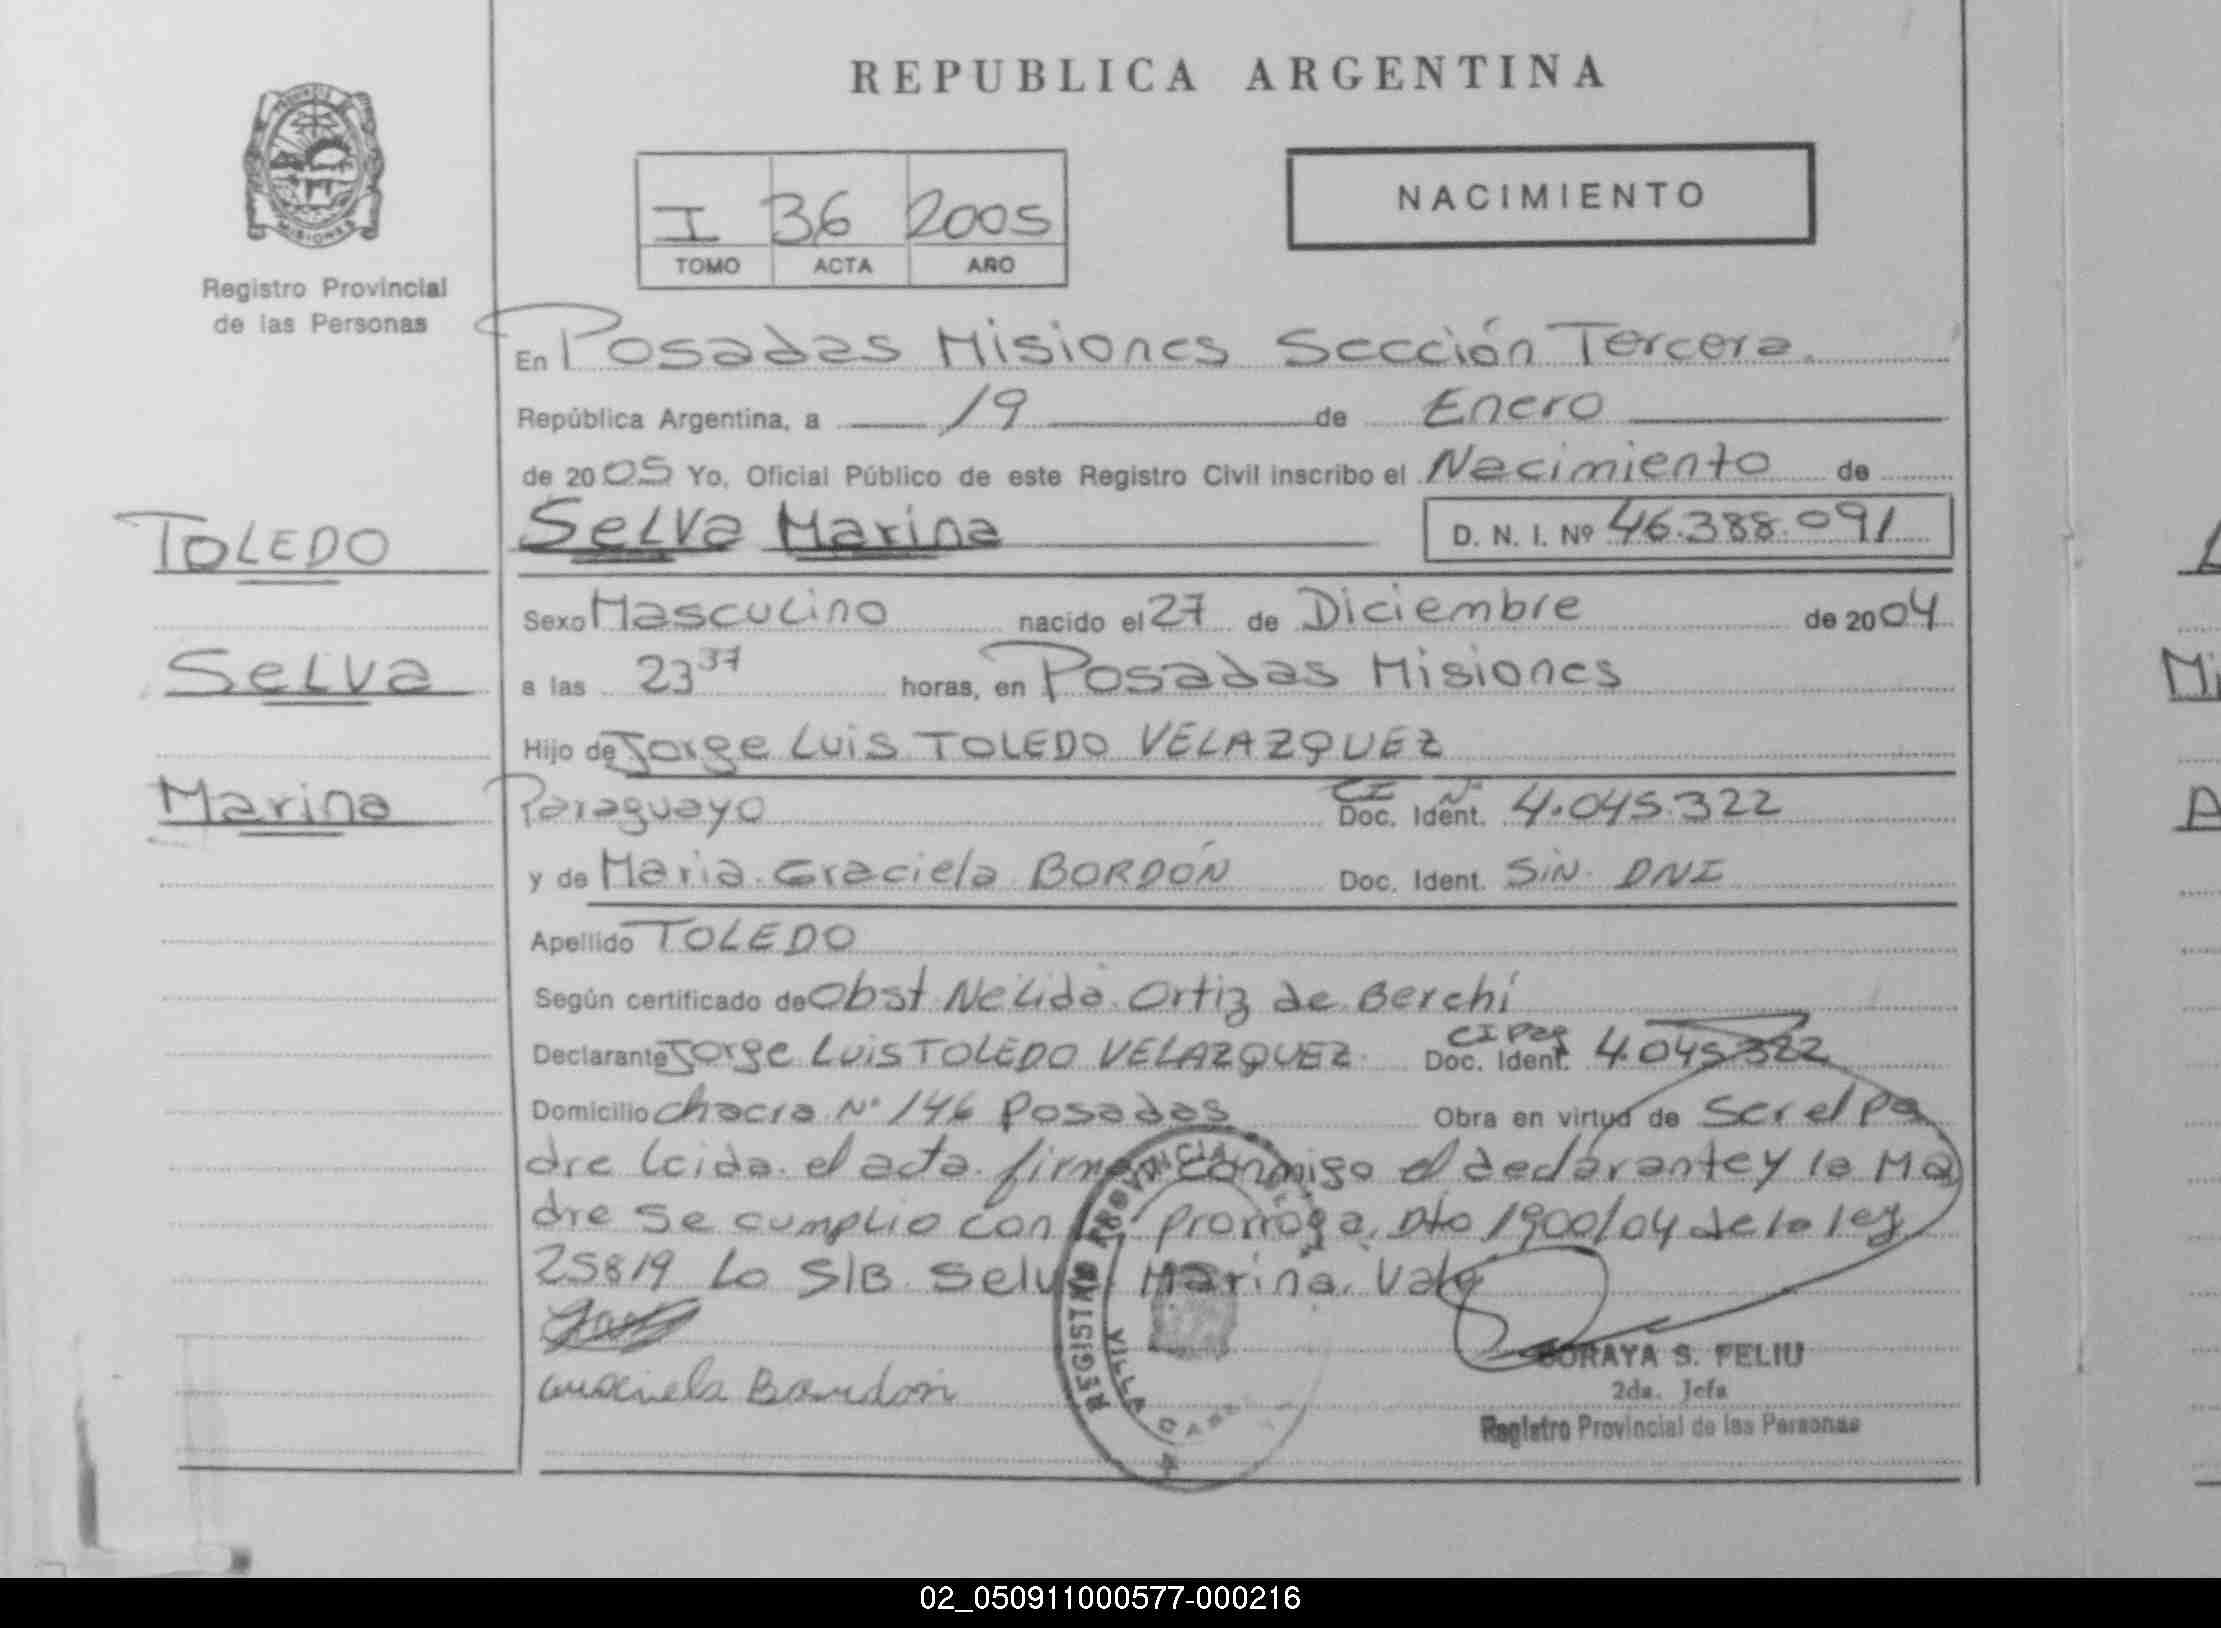 REPUBLICA ARGENTINA
PROVINCIA DE
MISIONES
Registro Provincial
de las Personas
I 36 2005
TOMO ACTA AÑO
NACIMIENTO
En Posadas Misiones Sección Tercera.
República Argentina, a 19 de Enero
de 2005 Yo, Oficial Público de este Registro Civil inscribo el Nacimiento de
TOLEDO
Selva Marina
D. N. I. Nº 46.388.091
Sexo Masculino nacido el 27 de Diciembre de 2004
Selva
a las 23 37 horas, en Posadas Misiones
Hijo de Jorge Luis TOLEDO VELAZQUEZ
Marina
Paraguayo CI Nº Doc. Ident. 4.045.322
y de Maria Graciela BORDÓN Doc. Ident. Sin DNI
Apellido TOLEDO
Según certificado de Obst Nelida Ortiz de Berchi
Declarante Jorge Luis TOLEDO VELAZQUEZ CI Pag Doc. Ident. 4.045.322
Domicilio chacra Nº 146 Posadas Obra en virtud de ser el Pa
dre leida el acta firma conmigo el declarante y la Ma
dre se cumplio con prorroga Dto 1900/04 de la ley
25819 Lo S/B Selva Marina Vale
Graciela Bordon
REGISTRO PROVINCIAL
VILLA CABE
4
SORAYA S. FELIU
2da. Jefa
Registro Provincial de las Personas
Mi
A
02_050911000577-000216